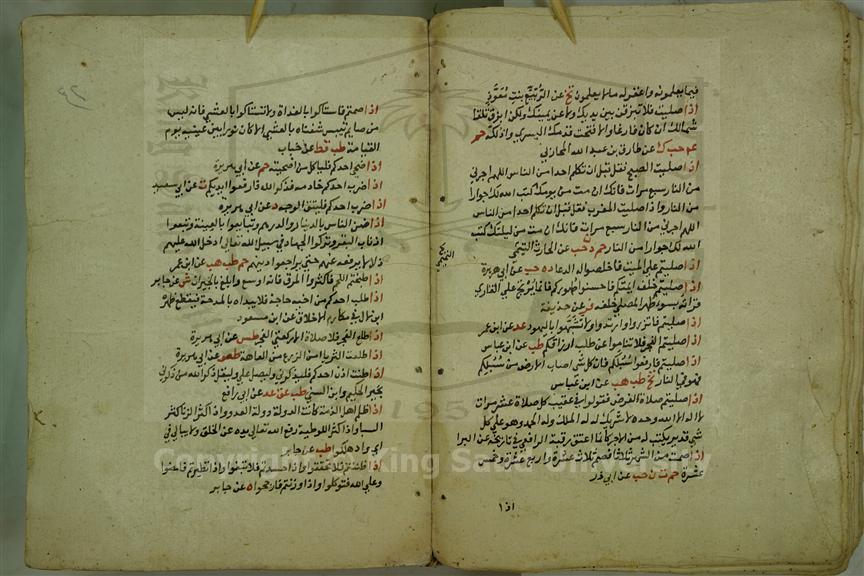 فيما يعلمون واغفر له ما لا يعلمون تخ عن الربيع بنت معوذ
اذا صليت فلا تبزقن بين يديك ولا عن يمينك ولكن ابزق تلقا
شمالك ان كان فارغا والا فتحت قدمك اليسرى وادلكه حم
حب ك عن طارق بن عبد الله المحاربي
اذا صليت الصبح فقل قبل ان تكلم احدا من الناس اللهم اجرني
من النار سبع مرات فانك ان مت من يومك كتب الله لك جوارا
من النار واذا صليت المغرب فقل قبل ان تكلم احدا من الناس
اللهم اجرني من النار سبع مرات فانك ان مت من ليلتك كتب
الله لك جوارا من النار حم د حب عن الحارث التيمي
اذا صليتم على الميت فاخلصوا له الدعا د ه حب عن ابي هريرة
اذا صليتم خلف ايمتكم فاحسنوا طهوركم فانما يرتج على القاري
قراته بسوء طهر المصلي خلفه فر عن حذيفة
اذا صليتم فاتزروا وارتدوا ولا تشبهوا باليهود عد عن ابن عمر
اذا صليتم الفجر فلا تناموا عن طلب ارزاقكم طب عن ابن عباس
اذا صليتم فارفعوا سبلكم فان كل شي اصاب الارض من سبلكم
فهو في النار تخ طب هب عن ابن عباس
اذا صليتم صلاة الفرض فقولوا في عقيب كل صلاة عشر مرات
لا اله الا الله وحده لا شريك له له الملك وله الحمد وهو على كل
شي قدير يكتب له من الاجر كانما اعتق رقبة الرافعي في تاريخه عن البرا
اذا صمت من الشهر ثلاثا فصم ثلاث عشرة واربع عشرة وخمس
عشرة حم ت ن حب عن ابي ذر
اذا
اذا صمتم فاستاكوا بالغداة ولا تستاكوا بالعشي فانه ليس
من صايم تيبس شفتاه بالعشي الا كان نورا بين عينيه يوم
القيامة طب قط عن خباب
اذا ضحى احدكم فلياكل من اضحيته حم عن ابي هريرة
اذا ضرب احدكم خادمه فذكر الله فارفعوا ايديكم ت عن ابي سعيد
اذا ضرب احدكم فليتق الوجه د عن ابي هريرة
اذا ضن الناس بالدينار والدرهم وتبايعوا بالعينة وتبعوا
اذناب البقر وتركوا الجهاد في سبيل الله تعالى ادخل الله عليهم
ذلا لا يرفعه عنهم حتى يراجعوا دينهم حم طب هب عن ابن عمر
اذا طبختم اللحم فاكثروا المرق فانه اوسع وابلغ بالجيران ش عن جابر
اذا طلب احدكم من اخيه حاجة فلا يبداه بالمدحة فيقطع ظهره
ابن لال في مكارم الاخلاق عن ابن مسعود
اذا طلع الفجر فلا صلاة الا ركعتي الفجر طس عن ابي هريرة
اذا طلعت الثريا امن الزرع من العاهة طص عن ابي هريرة
اذا طنت اذن احدكم فليذكرني وليصل علي وليقل ذكر الله من ذكرني
بخير الحكيم وابن السني طب عق عد عن ابي رافع
اذا ظلم اهل الذمة كانت الدولة دولة العدو واذا كثر الزنا كثر
السبا واذا كثر اللوطية رفع الله تعالى يده عن الخلق ولا يبالي في
اي واد هلكوا طب عن جابر
اذا ظننتم فلا تحققوا واذا حسدتم فلا تبغوا واذا تطيرتم فامضوا
وعلى الله فتوكلوا واذا وزنتم فارجحوا ه عن جابر
Copyright © King Saud University
195